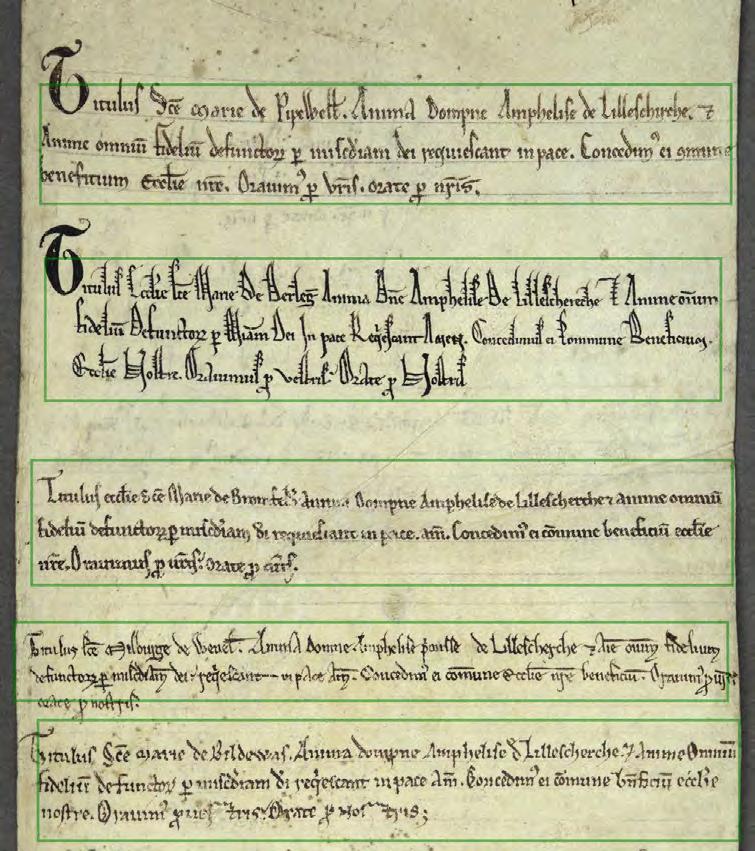 Titulus Sc̄e Marie de Pipewell̄. Anima Dompne Amphelise de Lilleschirche. ⁊
Anime omniū fideliū defunctoꝝ ꝑ misc̄diam dei requiescant in pace. Concedimꝰ ei commune
beneficium Eccl̄ie nr̄e. Oravimꝰ ꝓ vr̄is. orate ꝓ nr̄is.
Titulus Eccl̄ie sc̄e Marie De Berleḡ Anima Dn̄e Amphelise De Lilleschereche ⁊ Anime om̄ium
fideliū Defunctoꝝ ꝑ Mīam Dei In pace Reqͥescant Amen. Concedimus ei Commune Beneficium.
Eccl̄ie Nostre. Oravimus ꝓ vestris. Orate ꝓ Nostris
Titulus eccl̄ie sc̄e Marie de Anima Dompne Amphelise de Lillescherche ⁊ anime omniū
fidelium defunctoꝝ ꝑ misc̄diam dī requiescant in pace. am̄. Concedimꝰ ei cōmune beneficiū eccl̄ie
nr̄e. Oravimus ꝓ vr̄is. orate ꝓ nr̄is.
Titulus sc̄e Milburge de Wenel̄. Anima Domne Amphelise de Lillescherche ⁊ āie om̄iū fidelium
defunctoꝝ ꝑ misc̄diam dei reqͥescant in pace Am̄. Concedimꝰ ei cōmune Eccl̄ie nr̄e beneficiū. Oravimꝰ ꝓ vr̄is
orate ꝓ nostris.
Titulus Sc̄e Marie de Bildewas. Anima dompne Amphelise d̄ Lillescherche. ⁊ Anime Omniū
fidelium defunctoꝝ ꝑ misc̄diam dī reqͥescant in pace Am̄. Concedimꝰ ei cōmune bn̄ficiū eccl̄ie
nostre. Oravimꝰ ꝓ vestris. Orate ꝓ nostris;